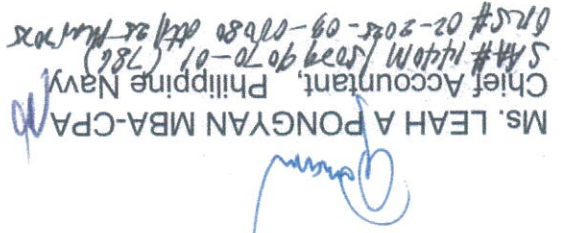 Ms. LEAH A PONGYAN MBA-CPA
Chief Accountant, Philippine Navy
SAA# 1440M /502990 70-01 (786)
ORS# 02-2025-03- dtd 25-Mar 2025